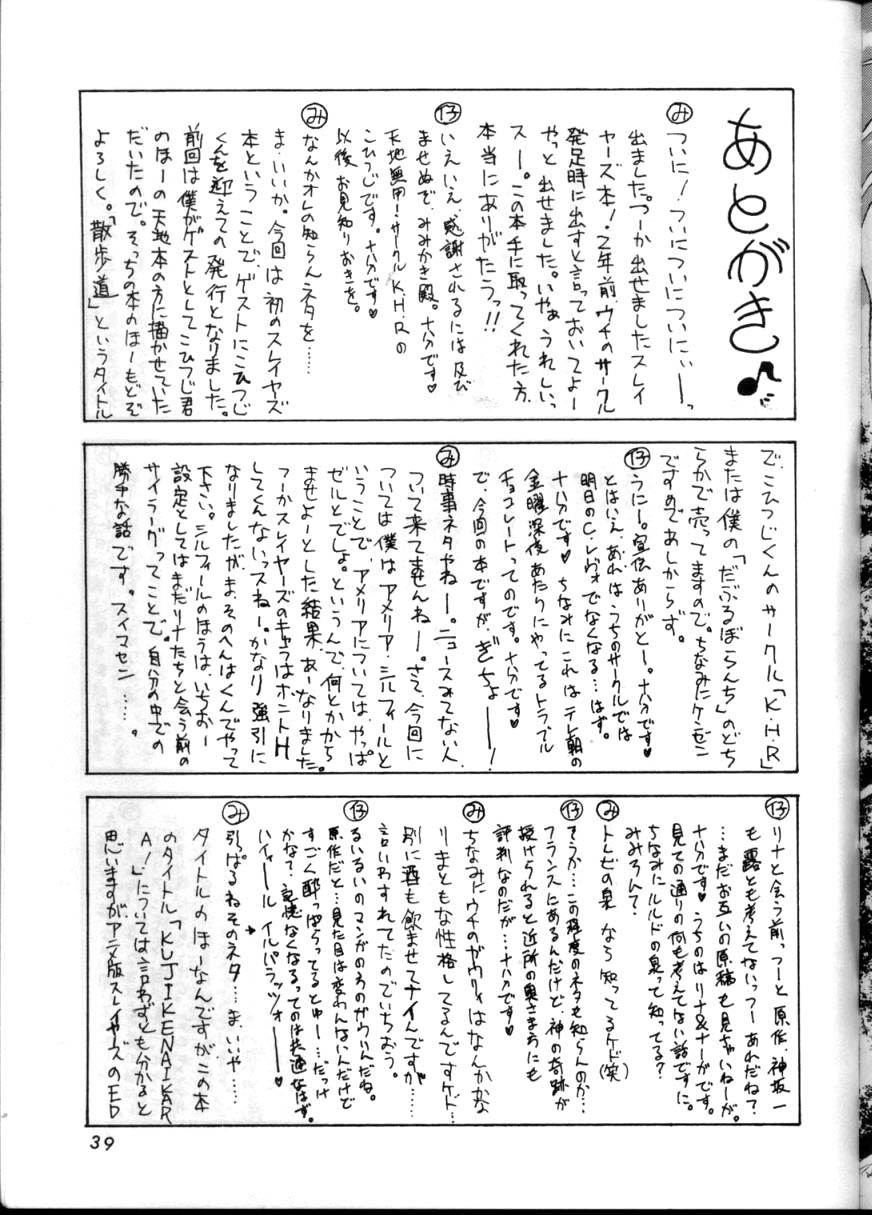 あとがき♪
み ついに!ついについについにぃーっ
出ました。つーか出せましたスレイ
ヤーズ本!2年前、ウチのサークル
発足時に出すと言っておいてよー
やっと出せました。いやぁうれしいっ
スー。この本手に取ってくれた方、
本当にありがたうっ!!
いえいえ、感謝されるには及び
ませぬで、みみかき殿。十分です♥
天地無用!サークルK.H.Rの
こひつじです。十分です♥
以後お見知りおきを。
み なんかオレの知らんネタを……
ま、いいか。今回は初のスレイヤーズ
本ということで、ゲストにこひつじ
くんを迎えての発行となりました。
前回は僕がゲストとしてこひつじ君
のほーの天地本の方に描かせていた
だいたので。そっちの本のほーもどぞ
よろしく。「散歩道」というタイトル
で、こひつじくんのサークル「K・H・R」
または僕の「だぶるぼらんち」のどち
らかで売ってますので。ちなみにケンゼン
ですのであしからず。
うにー。宣伝ありがとー。十分です♥
とはいえ、あれはうちのサークルでは
明日のC.レヴォでなくなる…はず。
十分です♥ ちなみにこれはテレ朝の
金曜深夜あたりにやってるトラブル
チョコレートってのです。十分です♥
で、今回の本ですが、ぎちょーー!
み 時事ネタやねー。ニュースみてない人、
ついて来てませんねー。さて、今回に
ついては僕はアメリア・シルフィールと
いうことで、アメリアについては、やっぱ
ゼルとでしょ。というんで、何とかから
ませよーとした結果、あーなりました。
つーかスレイヤーズのキャラはホントH
してくんないっスねー。かなり強引に
なりましたが、ま、そのへんはくんでやって
下さい。シルフィールのほうは、いちおー
設定としてはまだリナたちと会う前の
サイラーグってことで。自分の中での
勝手な話です。スイマセン……。
リナと会う前っつーと原作、神坂一
も露とも考えてないっつーあれだね?
…まだお互いの原稿も見ちゃいねーが。
十分です♥ うちのはリナ&ナーガです。
見ての通りの何も考えてない話ですに。
ちなみにルルドの泉って知ってる?
みみろんて?
み トレビの泉なら知ってるケド(笑)
そうか…この程度のネタも知らんのか…
フランスにあるんだけど、神の奇跡が
授けられると近所の奥さまにも
評判なのだが…十分です♥
み ちなみにウチのガウリィはなんかかな
りまともな性格してるんですケド…
別に酒も飲ませてナイんですが……
言いわすれてたのでいちおう。
るいるいのマンガのもののガウリィんだね。
原作だと…見た目は変わんないんだけど
すごく酔っぱらってるとゆー…だっけ
かな?記憶なくなるってのは共通なはず。
ハイィール イルパラッツォーー♥
み 引っぱるねそのネタ…ま、いいや……
タイトルのほーなんですが、この本
のタイトル「KUJIKENAIKAR
A!」については言わずとも分かると
思いますがアニメ版スレイヤーズのED
39